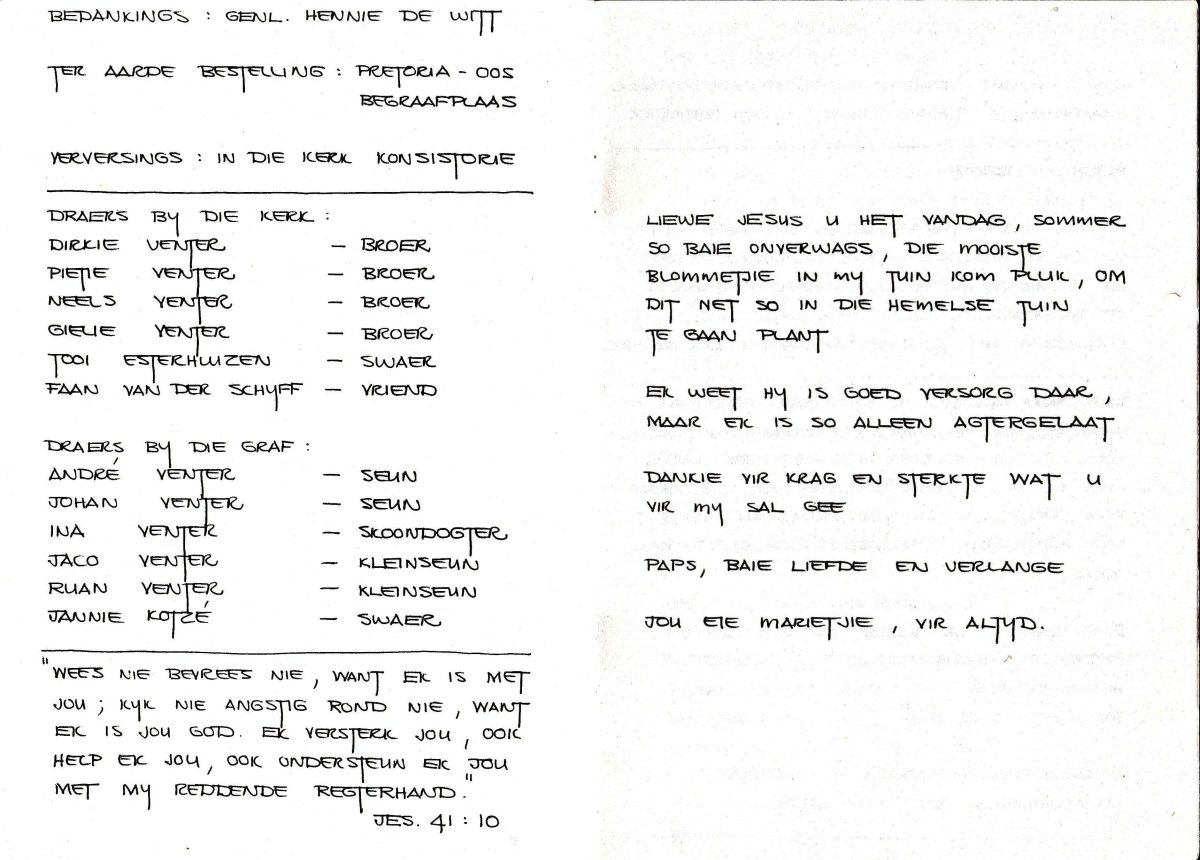 BEDANKINGS : GENL. HENNIE DE WITT
TER AARDE BESTELLING : PRETORIA - OOS
BEGRAAFPLAAS
VERVERSINGS : IN DIE KERK KONSISTORIE
DRAERS BY DIE KERK :
DIRKIE VENTER – BROER
PIETIE VENTER – BROER
NEELS VENTER – BROER
GIELIE VENTER – BROER
TOOI ESTERHUIZEN – SWAER
FAAN VAN DER SCHYFF – VRIEND
DRAERS BY DIE GRAF :
ANDRÉ VENTER – SEUN
JOHAN VENTER – SEUN
INA VENTER – SKOONDOGTER
JACO VENTER – KLEINSEUN
RUAN VENTER – KLEINSEUN
JANNIE KOTZÉ – SWAER
"WEES NIE BEVREES NIE, WANT EK IS MET
JOU ; KYK NIE ANGSTIG ROND NIE, WANT
EK IS JOU GOD. EK VERSTERK JOU, OOK
HELP EK JOU, OOK ONDERSTEUN EK JOU
MET MY REDDENDE REGTERHAND."
JES. 41 : 10
LIEWE JESUS U HET VANDAG, SOMMER
SO BAIE ONVERWAGS, DIE MOOISTE
BLOMMETJIE IN MY TUIN KOM PLUK, OM
DIT NET SO IN DIE HEMELSE TUIN
TE GAAN PLANT
EK WEET HY IS GOED VERSORG DAAR,
MAAR EK IS SO ALLEEN AGTERGELAAT
DANKIE VIR KRAG EN STERKTE WAT U
VIR MY SAL GEE
PAPS, BAIE LIEFDE EN VERLANGE
JOU EIE MARIETJIE, VIR ALTYD.